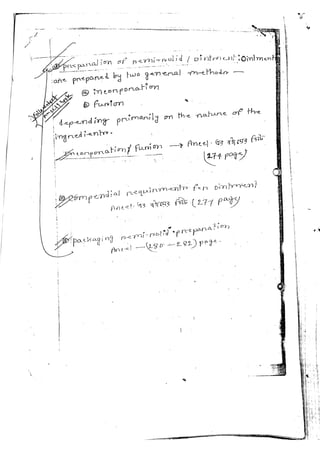 preparation of semi-solid / ointment : Ointment
are prepared by two general methods —
ⓐ incorporation
ⓑ fusion
depending primarily on the nature of the
ingredients.
Incorporation / fusion → Ansel
(274 page)
Compendial requirments for ointment
Ansel (277 page)
packaging semi-solid preparation
Ansel — (280 — 282) page.